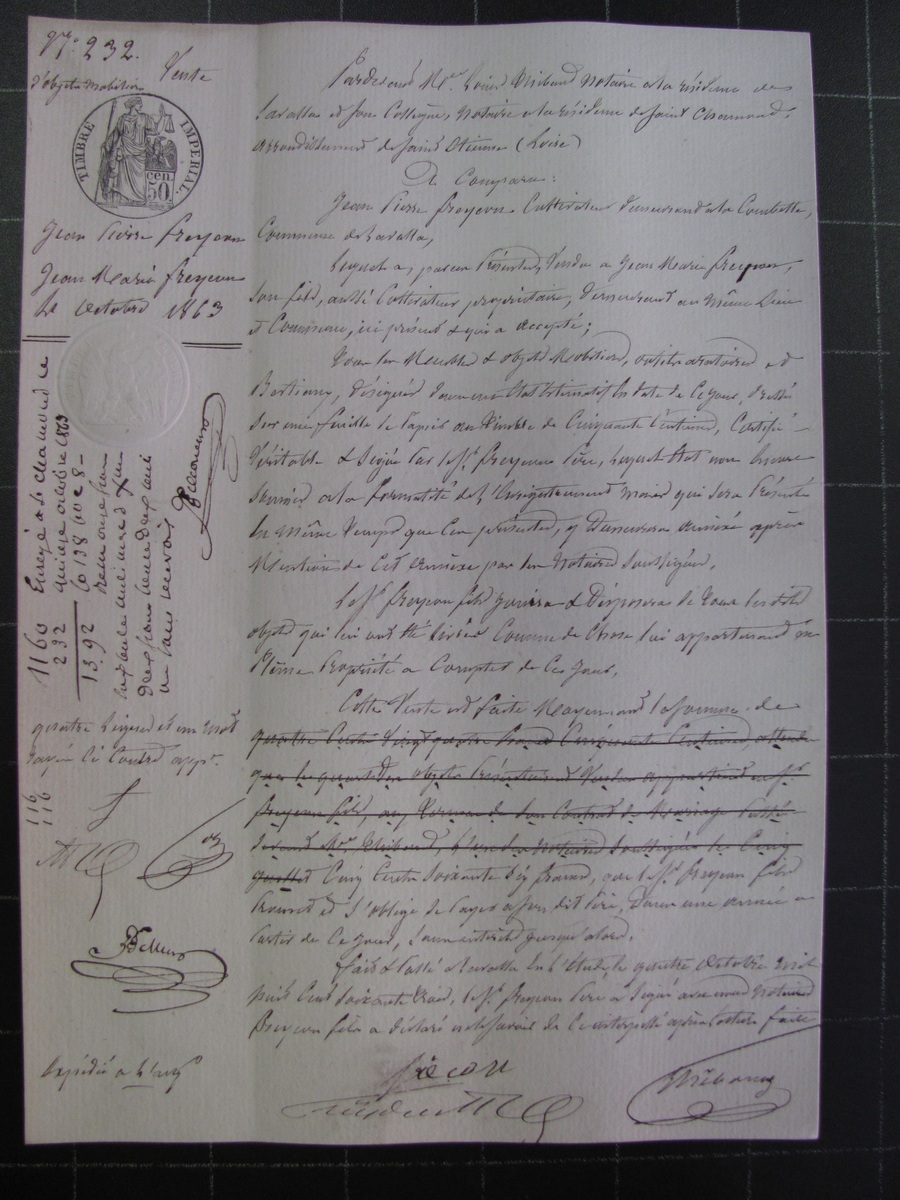 N° 232.
Vente
d'objets mobiliers
TIMBRE IMPERIAL
50 cen
Jean Pierre freycon
Jean Marie freycon
Le 4 Octobre 1863
Enregé à St chamond le
quinze octobre 1863
fo 138 Ro c 8
deux francs
un sans renvoi
1160
232
1392
quatre lignes et un mot
rayés ci contre appr.
116
116
Expédié à
Pardevant Me Louis Thibaud Notaire à la résidence de
Lavalla et Son Collègue, Notaire à la résidence de Saint Chamond,
arrondissement de Saint Etienne (Loire)
A Comparu:
Jean Pierre freycon Cultivateur demeurant à la Combatte,
Commune de Lavalla,
Lequel a, par ces présentes, Vendu a Jean Marie freycon,
Son fils, aussi Cultivateur propriétaire, demeurant au même Lieu
et Commune, ici présent & qui a accepté;
Tous les Meubles & objets Mobiliers, outils aratoires et
Bestiaux, désignés dans un état estimatif en date de Ce jour, dressé
Sur une feuille de papier au Timbre de Cinquante Centimes, Certifié
Véritable & Signé par le Sr freycon père, Lequel état non encore
Soumis à la formalité de l'Enregistrement mais qui Sera présenté
En Même Temps que Ces présentes, y demeurera annexé après
Mention de Cet annexe par les Notaires Soussignés.
Le Sr freycon fils jouira & disposera de Tous les dits
objets qui lui ont été Livrés Comme de Chose lui appartenant en
Pleine Propriété a Compter de Ce jour.
Cette Vente est faite Moyennant la Somme de
quatre Cents Vingt quatre francs Cinquante Centimes, attendu
que le quart des objets Présentement Vendus appartient au Sr
freycon fils, au Terme de Son Contrat de Mariage Passé
devant Me Thibaud, l'un des Notaires Soussignés le Cinq
juillet Cinq Cents Soixante dix francs, que le Sr freycon fils
promet et S'oblige de Payer a Son dit Père, dans une année a
Partir de Ce jour, Sans intérêt jusqu'alors.
Fait & Passé a Lavalla En l'Etude, le quatre Octobre Mil
huit Cent Soixante Trois, le Sr freycon Père a Signé avec nous Notaires
freycon fils a déclaré ne le Savoir de Ce interpellé après Lecture faite
frécon
Thibaud